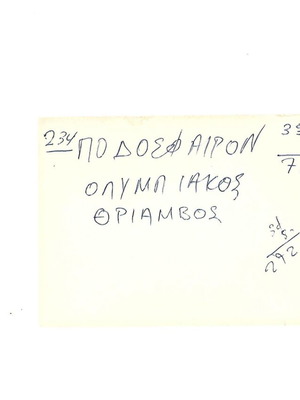 234 ΠΟΔΟΣΦΑΙΡΟΝ
ΟΛΥΜΠΙΑΚΟΣ
ΘΡΙΑΜΒΟΣ
7
292